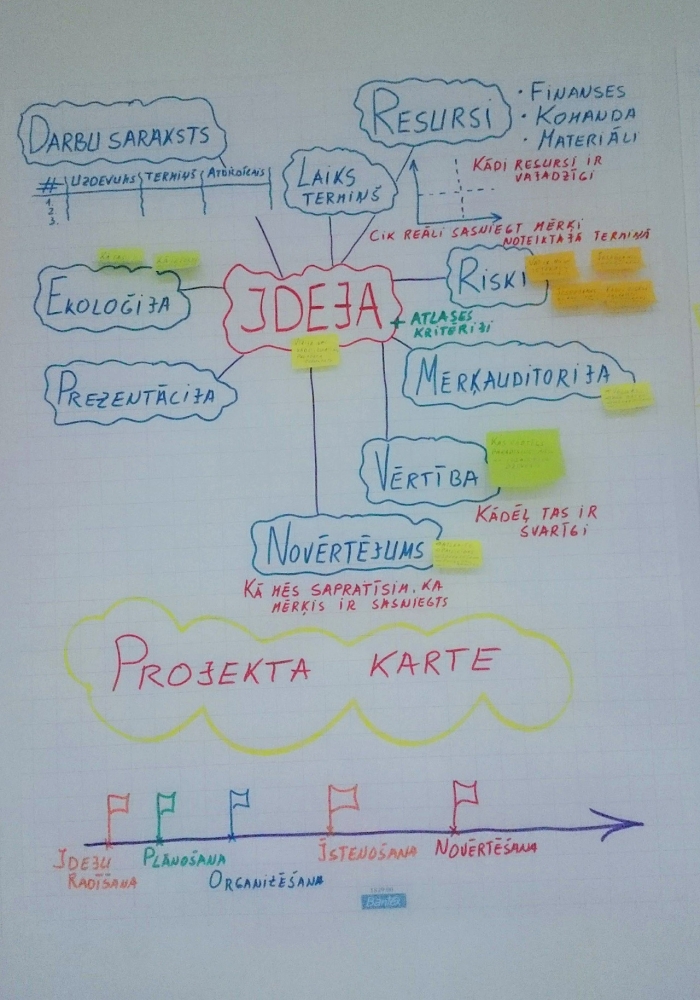 DARBU SARAKSTS
# UZDEVUMS TERMIŅŠ ATBILDĪGAIS
1.
2.
3.
LAIKS
TERMIŅŠ
RESURSI
• FINANSES
• KOMANDA
• MATERIĀLI
KĀDI RESURSI IR
VAJADZĪGI
CIK REĀLI SASNIEGT MĒRĶI
NOTEIKTAJĀ TERMIŅĀ
EKOLOĢIJA
IDEJA
+ ATLASES
KRITĒRIJI
RISKI
PREZENTĀCIJA
MĒRĶAUDITORIJA
VĒRTĪBA
KĀDĒĻ TAS IR
SVARĪGI
NOVĒRTĒJUMS
KĀ MĒS SAPRATĪSIM, KA
MĒRĶIS IR SASNIEGTS
PROJEKTA KARTE
IDEJU
RADĪŠANA
PLĀNOŠANA
ORGANIZĒŠANA
ĪSTENOŠANA
NOVĒRTĒŠANA